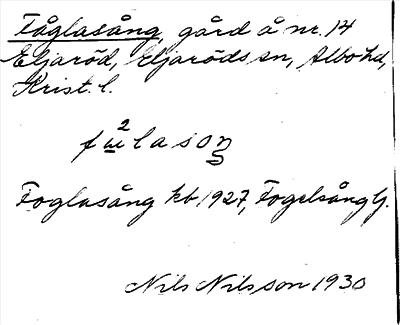 Fåglasång, gård å nr. 14
Eljaröd, Eljaröds sn, Albo hd,
Krist. l.
2
fɯlasoŋ
Foglasång kb 1927, Fogelsång G.
Nils Nilsson 1930